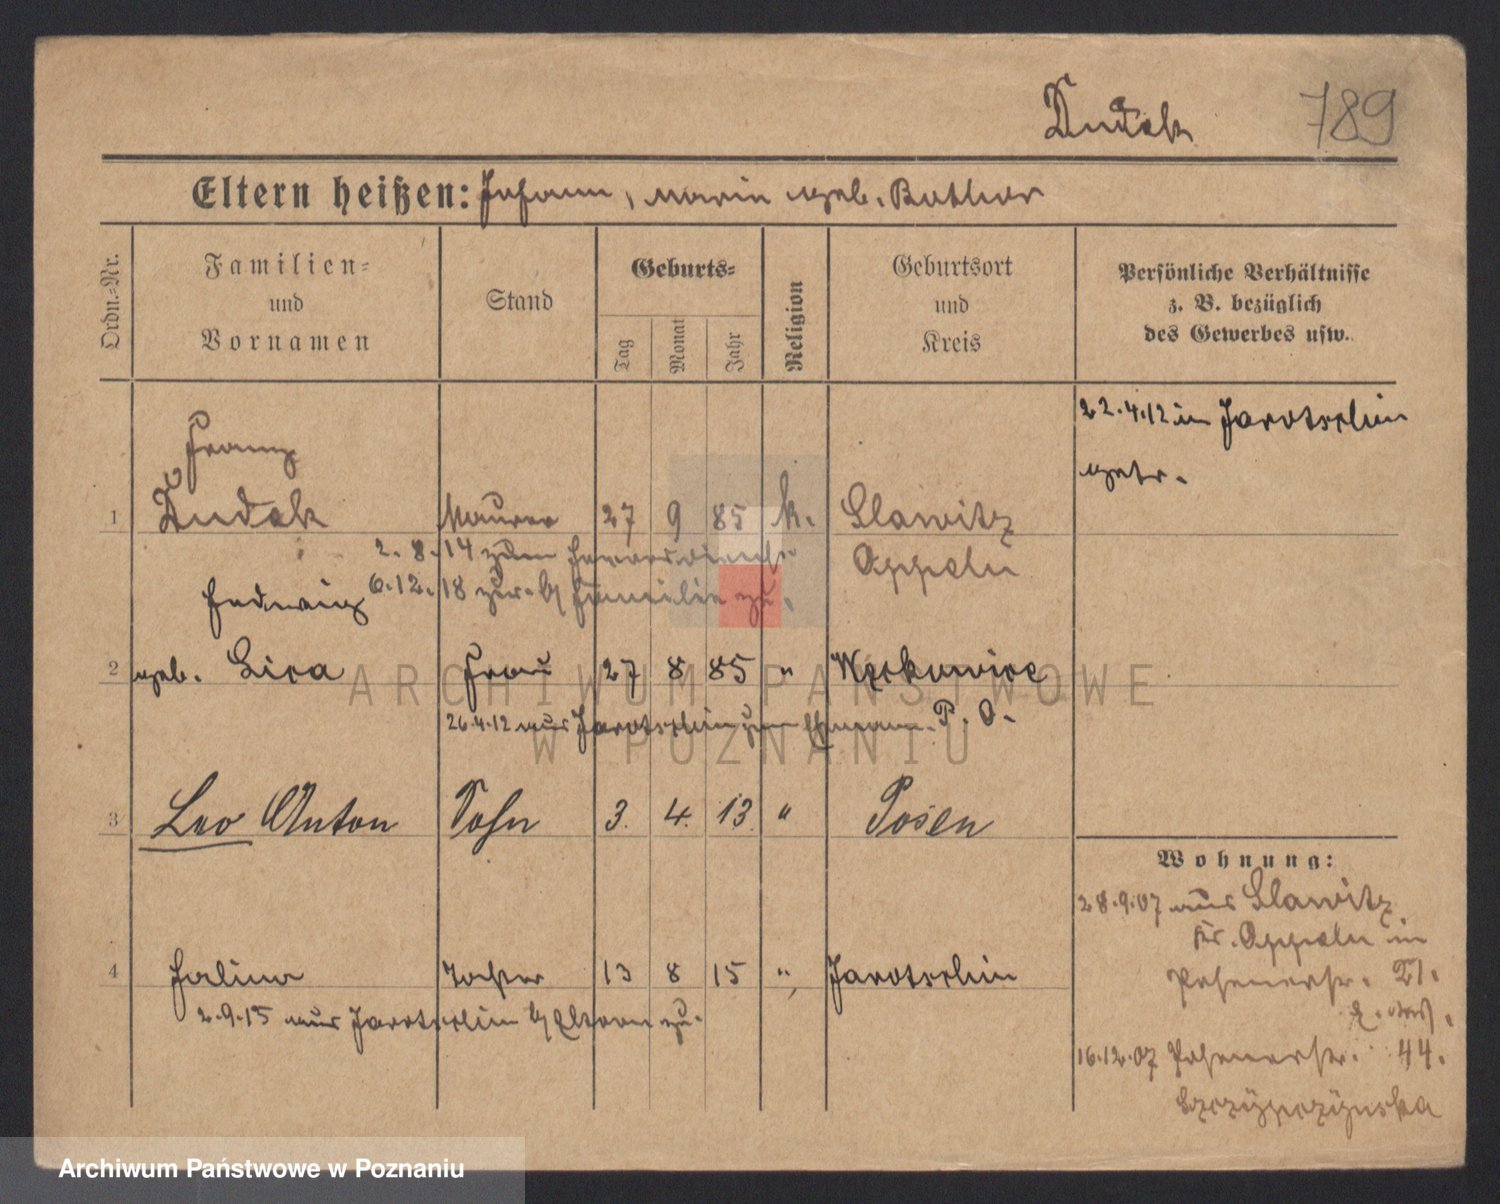 Dudek 789
Eltern heißen: Johann, Marie geb. Bathor
Ordn.-Nr.
Familien-
und
Vornamen
Stand
Geburts-
Tag
Monat
Jahr
Religion
Geburtsort
und
Kreis
Persönliche Verhältnisse
z. B. bezüglich
des Gewerbes usw.
22.4.12 in Jarotschin
getr.
Franz
1 Dudek Maurer 27 9 85 k. Slawitz
2.8.14 zum Heeresdienst Oppeln
6.12.18 zur. b/ Familie zu.
Hedwig
2 geb. Lisa Frau 27 8 85 "
26.4.12 aus Jarotschin zum Ehemann. P. O.
3 Leo Anton Sohn 3. 4. 13 " Posen
Wohnung:
28.9.07 aus Slawitz
Kr. Oppeln in
4 Halina Tochter 13 8 15 " Jarotschin
21.
2.9.15 aus Jarotschin b/ Eltern zu.
16.12.07 44.
ARCHIWUM PAŃSTWOWE
W POZNANIU
Archiwum Państwowe w Poznaniu